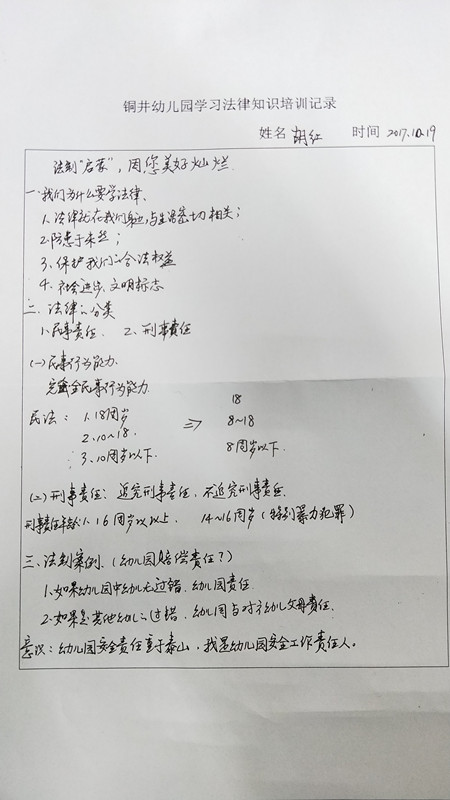 铜井幼儿园学习法律知识培训记录
姓名 胡红 时间 2017.10.19
法制“启蒙”，因您美好灿烂.
一.我们为什么要学法律、
1、法律就在我们身边,与生活密切相关；
2.防患于未然；
3、保护我们的合法权益
4.社会进步、文明标志
二、法律的分类
1、民事责任、 2、刑事责任
(一)民事行为能力.
完全民事行为能力.
18
民法： 1、18周岁 => 8~18
2、10~18.
3、10周岁以下. 8周岁以下.
(二)刑事责任: 追究刑事责任、不追究刑事责任.
刑事责任年龄:1、16周岁以上、 14~16周岁(特别暴力犯罪)
三、法制案例、(幼儿园赔偿责任？)
1、如果幼儿园中幼儿无过错、幼儿园责任.
2、如果是其他幼儿的过错、幼儿园与对方幼儿父母责任.
意识：幼儿园安全责任重于泰山，我是幼儿园安全工作责任人。